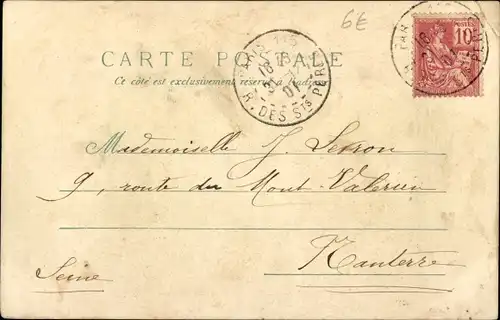 6€
CARTE POSTALE
Ce côté est exclusivement réservé à l'adresse
R. DES Sts PÈRES
10
Mademoiselle J.
9, route du Mont-Valérien
Nanterre
Seine